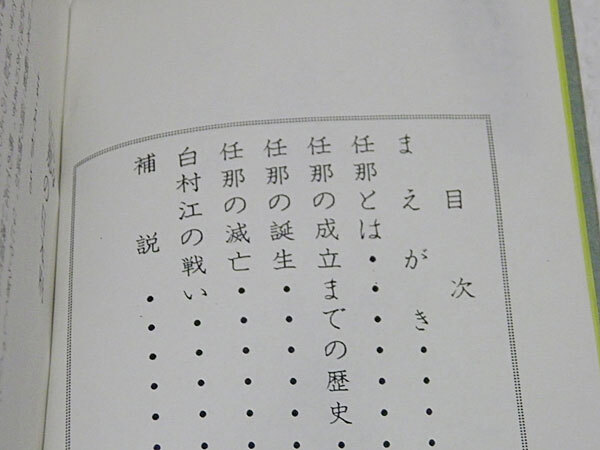 目次
まえがき・・・
任那とは・・・・・
任那の成立までの歴史・
任那の誕生・・・・・・
任那の滅亡・・・・・・
白村江の戦い・・・・・
補説・・・・・・